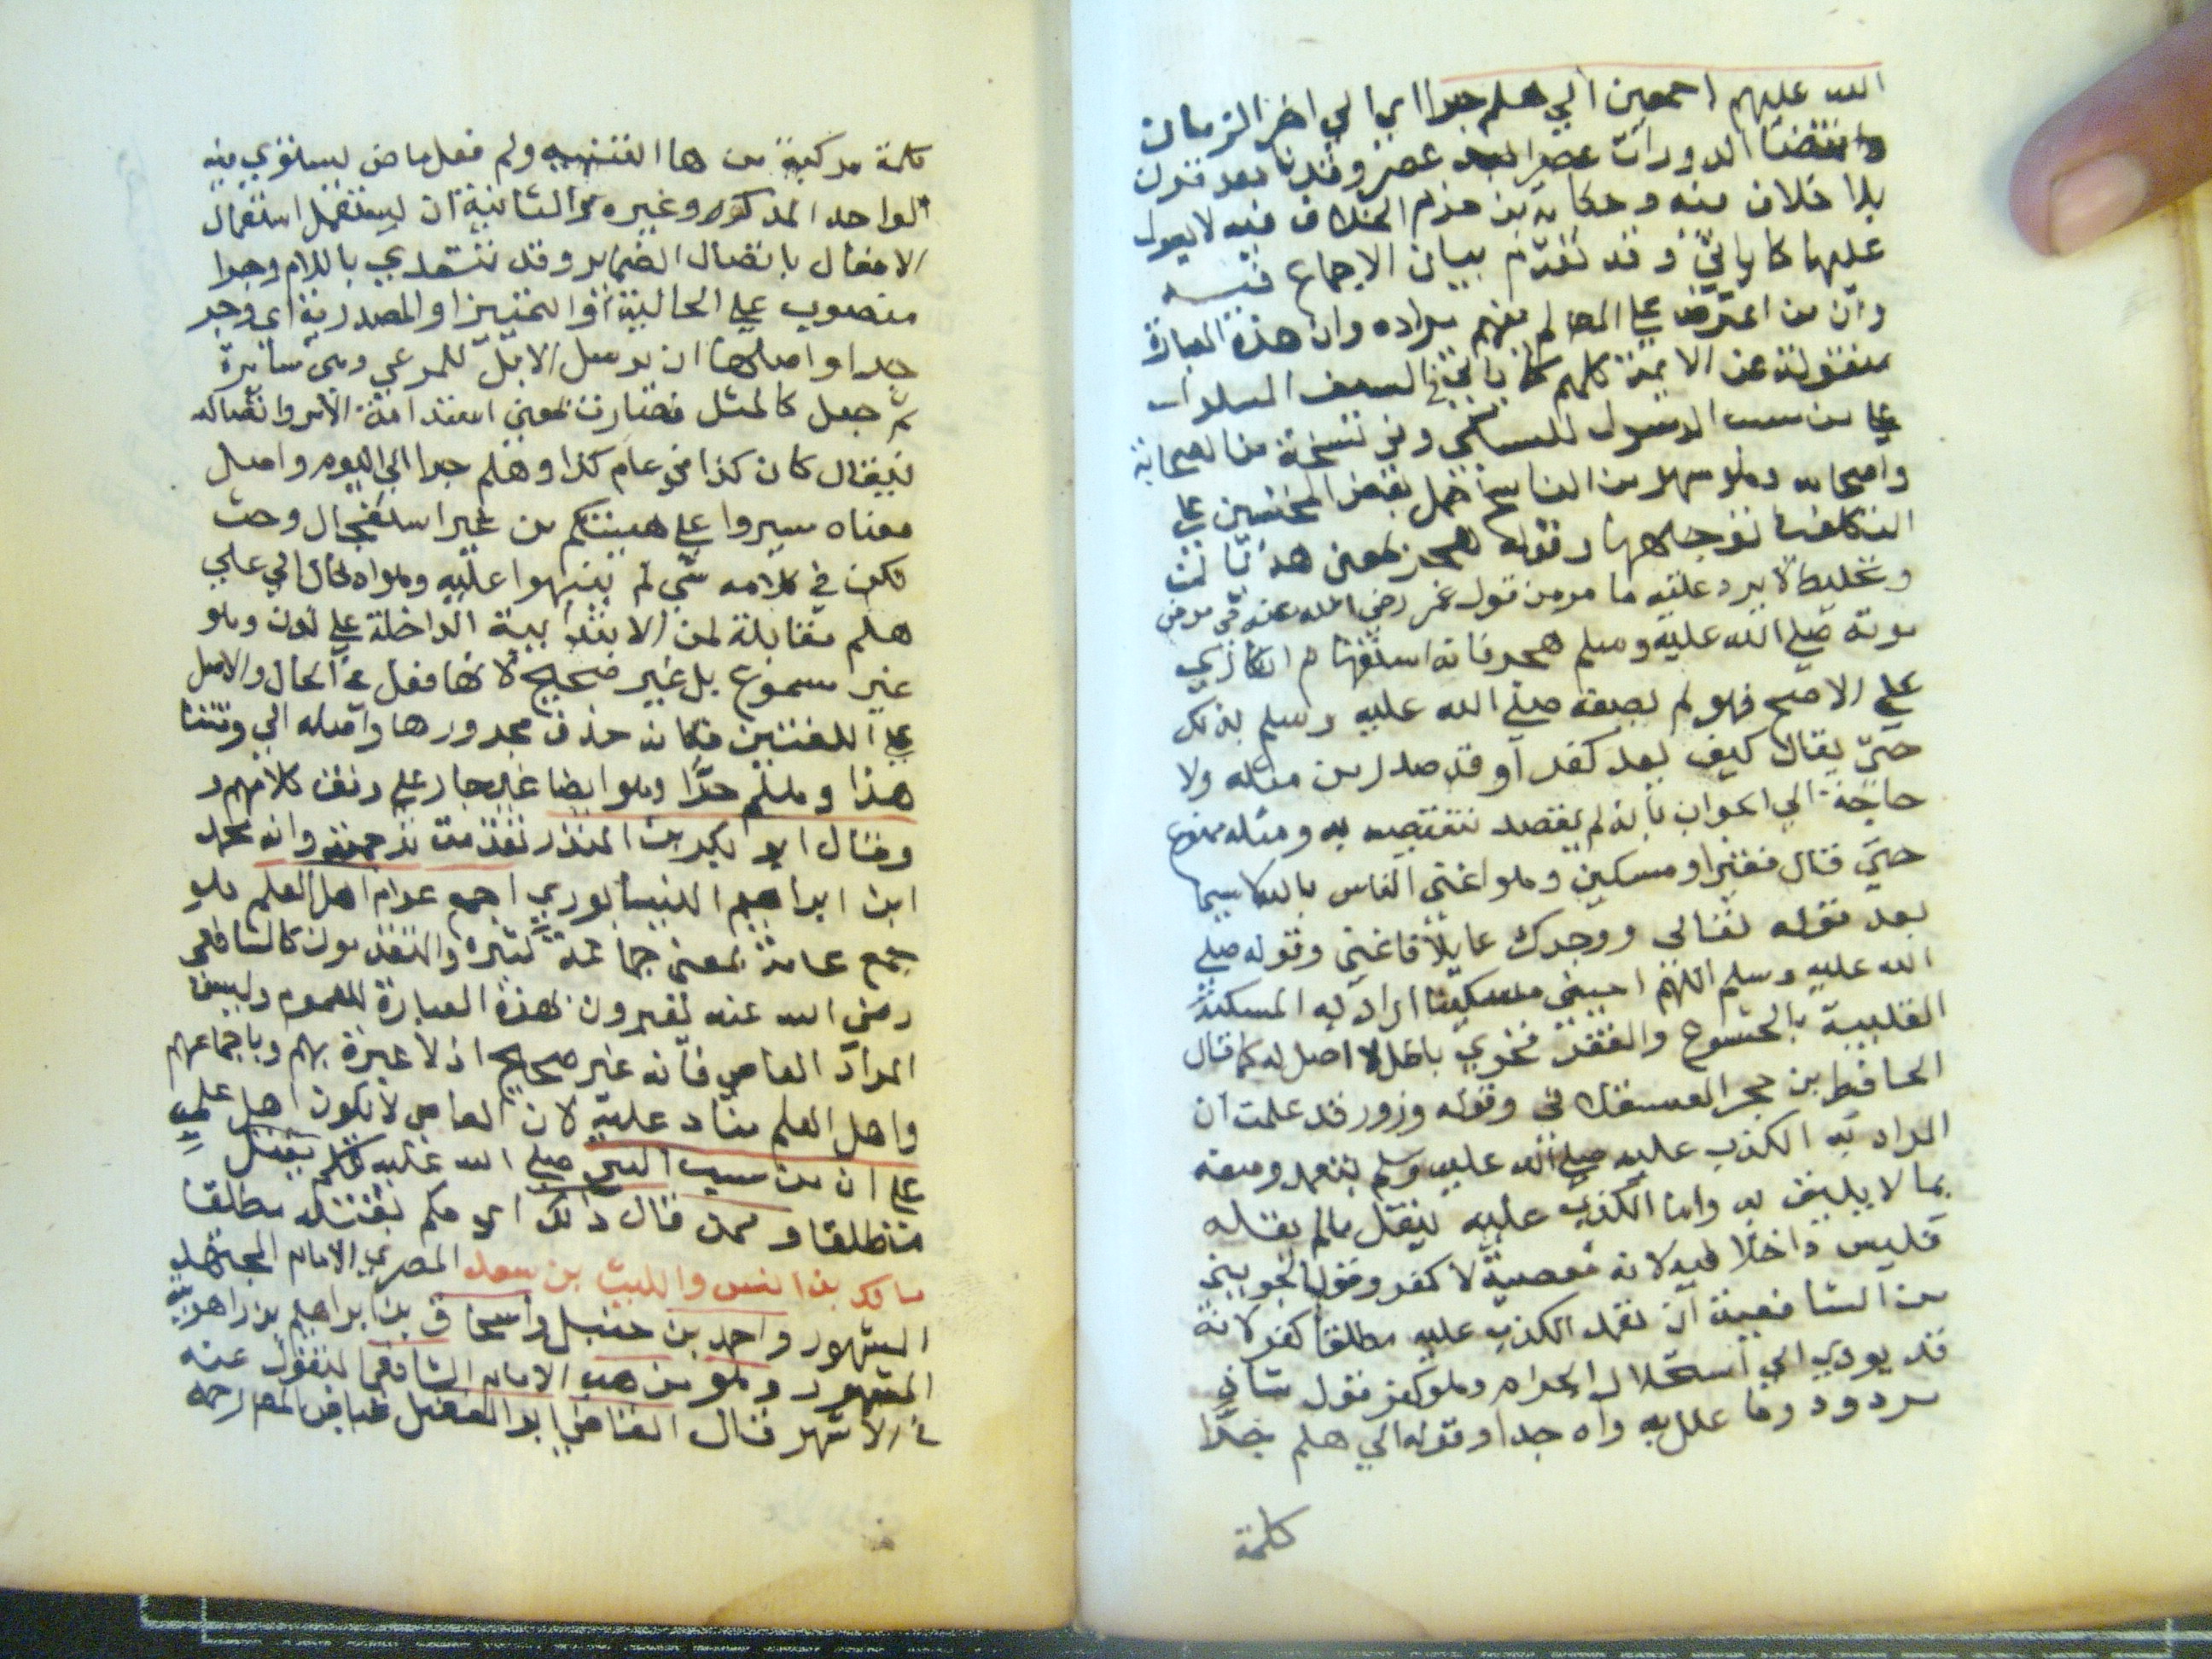 الله عليهم اجمعين الي هلم جرا اي الي اخر الزمان
وانقضا الدورات عصرا بعد عصر وقرنا بعد قرن
بلا خلاف منه وحكاية بن حزم الخلاف فيه لا يعول
عليها كما ياتي وقد تقدم بيان الاجماع فيه
وان من اعترض علي المصـ لم يفهم مراده وان هذه العبارة
منقولة عن الائمة كلهم كما ياتي في السيف المسلول
علي من سب الرسول للسبكي وفي نسخة من الصحابة
واصحابه وهو سهو من الناسخ حمل بعض المحشين علي
التكلف لتوجيهها وقوله هجر بمعني هذيان
وتخليط لا يرد عليه ما مر من قول عمر رضي الله عنه في مرض
موته صلي الله عليه وسلم هجر فانه استفهام انكاري
علي الاصح فهو لم يصفه صلي الله عليه وسلم بذلك
حتي يقال كيف يعد كفرا وقد صدر من مثله ولا
حاجة الي الجواب بانه لم يقصد تنقيصه به ومثله ممنوع
حتي قال فقيرا ومسكين وهو اغني الناس بالله لا سيما
بعد قوله تعالي ووجدك عايلا فاغني وقوله صلي
الله عليه وسلم اللهم احييني مسكينا اراد به المسكنة
القلبية بالخشوع والفقر فخري باطل لا اصل له كما قال
الحافظ بن حجر العسقلاني وقوله وزور قد علمت ان
المراد به الكذب عليه صلي الله عليه وسلم بتعمد وصفه
بما لا يليق به واما الكذب عليه بنقل ما لم يقله
فليس داخلا فيه لانه معصية لا كفر وقول الجويني
من الشافعية ان تعمد الكذب عليه مطلقا كفر لانه
قد يودي الي استحلال الحرام وهو كفر قول شاذ
مردود وما علل به واه جدا وقوله الي هلم جرا
كلمة
كلمة مركبة من ها التنبيه ولم فعل ماض يستوي فيه
الواحد المذكر وغيره والثانية ان يستعمل استعمال
الافعال باتصال الضماير وقد تتعدي باللام وجرا
منصوب علي الحالية او التمييز او المصدرية اي وجر
جرا واصلها ان ترسل الابل للمرعي وهي سايرة
ثم جعل كالمثل فصارت بمعني استدامة الامر واتصاله
فيقال كان كذا في عام كذا وهلم جرا الي اليوم واصل
معناه سيروا علي هينتكم من غير استعجال وحث
لكن في كلامه شي لم ينبهوا عليه وهو ادخال الي علي
هلم مقابلة لمن الابتدايية الداخلة علي لدن وهو
غير مسموع بل غير صحيح لانها فعل في الحال والاصل
علي اللغتين فكانه حذف مجرورها واصله الي وقتنا
هذا وهلم جرا وهو ايضا غير جار علي وفق كلامهم و
وقال ابو بكر بن المنذر تقدمت ترجمته وانه محمد
ابن ابراهيم النيسابوري اجمع عوام اهل العلم هو
جمع عامة بمعني جماعة كثيرة والمتقدمون كالشافعي
رضي الله عنه يعبرون بهذه العبارة للعموم وليس
المراد العامي فانه غير صحيح اذ لا عبرة بهم وباجماعهم
واهل العلم مناد عليه لان العامي لا يكون اهل علم
علي ان من سب النبي صلي الله عليه وسلم يقتل
مطلقا وممن قال ذلك اي حكم بقتله مطلقا
مالك بن انس والليث بن سعد المصري الامام المجتهد
المشهور واحمد بن حنبل واسحاق بن ابراهيم بن راهويه
المشهور وهو مذهب الامام الشافعي المنقول عنه
في الاشهر قال القاضي ابو الفضل عياض المصـ رحمه